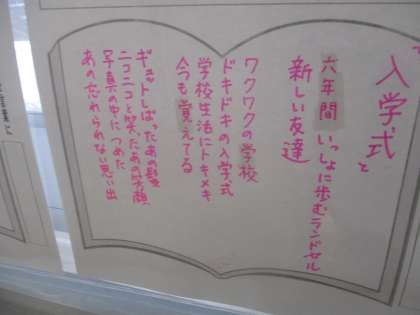 入学式と
六年間いっしょに歩むランドセル
新しい友達
ワクワクの学校
ドキドキの入学式
学校生活にトキメキ
今も覚えてる
ギュットしばったあの髪
ニコニコと笑ったあの笑顔
写真の中につめた
あの忘れられない思い出